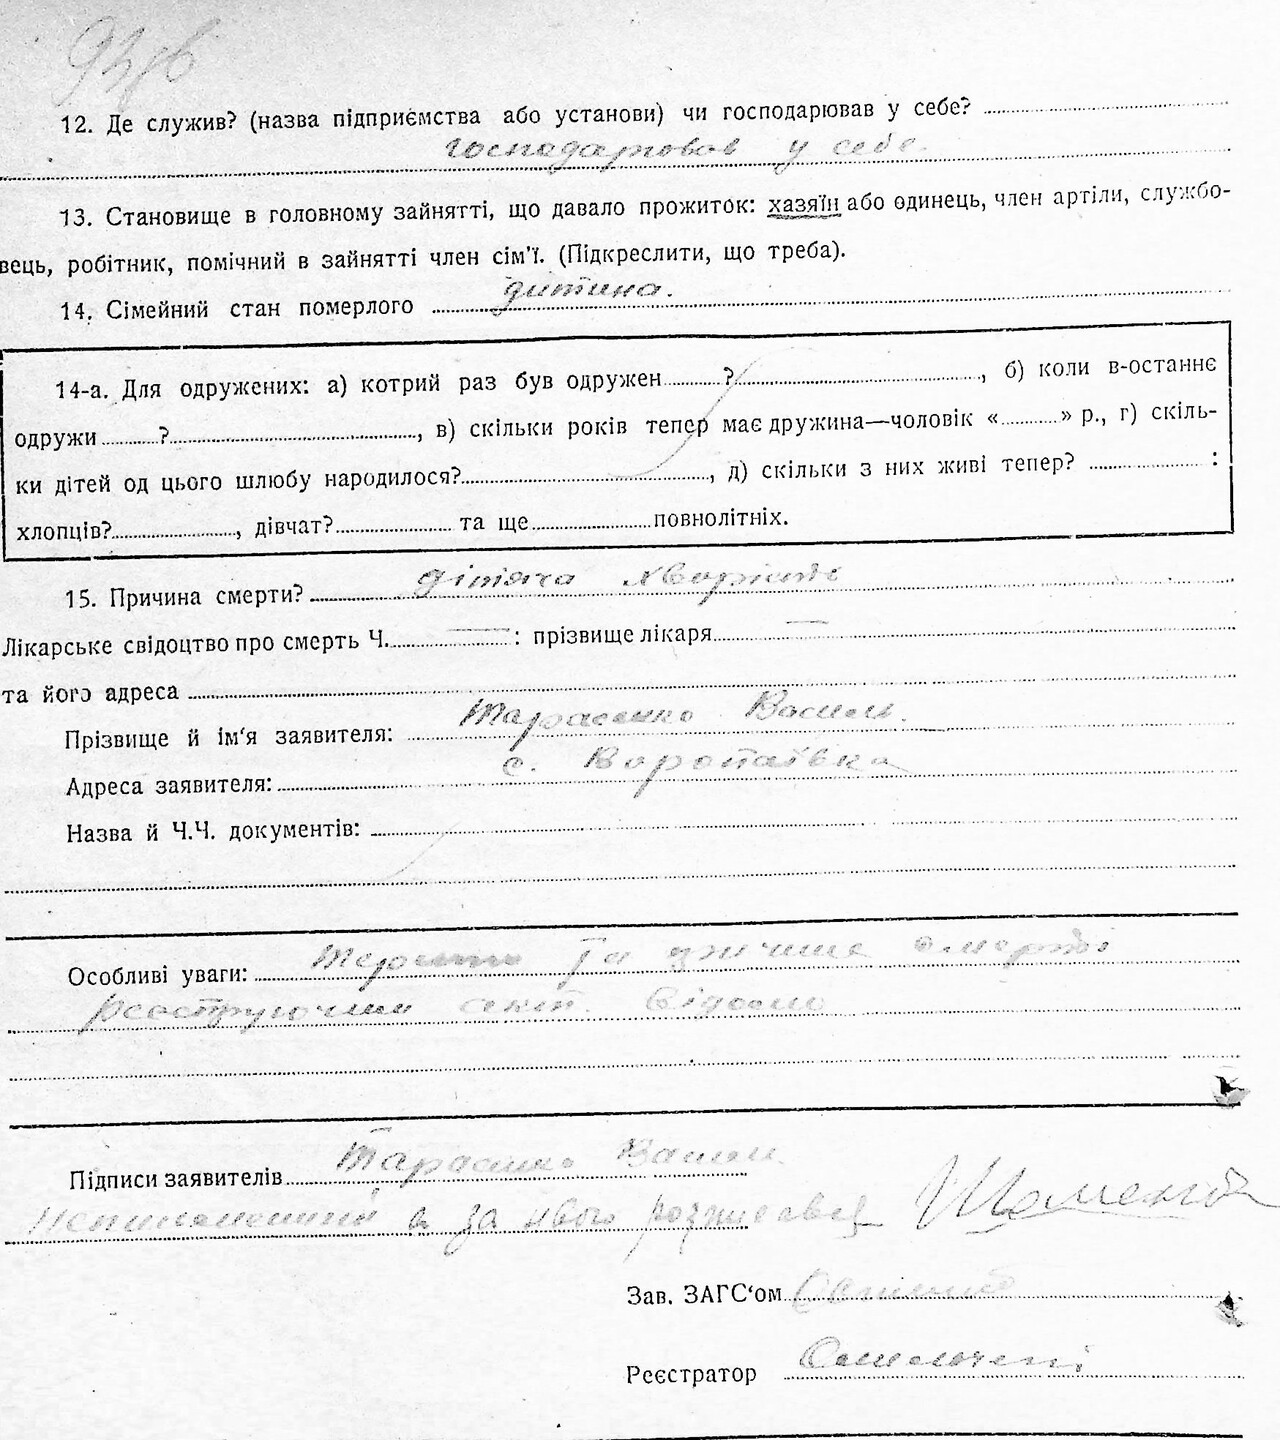 12. Де служив? (назва підприємства або установи) чи господарював у себе?
господарював у себе
13. Становище в головному зайнятті, що давало прожиток: хазяїн або одинець, член артіли, службо-
вець, робітник, помічний в зайнятті член сім'ї. (Підкреслити, що треба).
14. Сімейний стан померлого дитина.
14-а. Для одружених: а) котрий раз був одружен ?, б) коли в-останнє
одружи ?, в) скільки років тепер має дружина—чоловік « » р., г) скіль-
ки дітей од цього шлюбу народилося?, д) скільки з них живі тепер? :
хлопців?, дівчат? та ще повнолітніх.
15. Причина смерти? дітяча
Лікарське свідоцтво про смерть Ч. — : прізвище лікаря —
та його адреса
Прізвище й ім'я заявителя: Тарасенко Василь.
Адреса заявителя: с. Воропаївка
Назва й Ч.Ч. документів:
Особливі уваги: та смерти
акт. відомо
Підписи заявителів Тарасенко Васил.
а за нього
Зав. ЗАГС'ом
Реєстратор